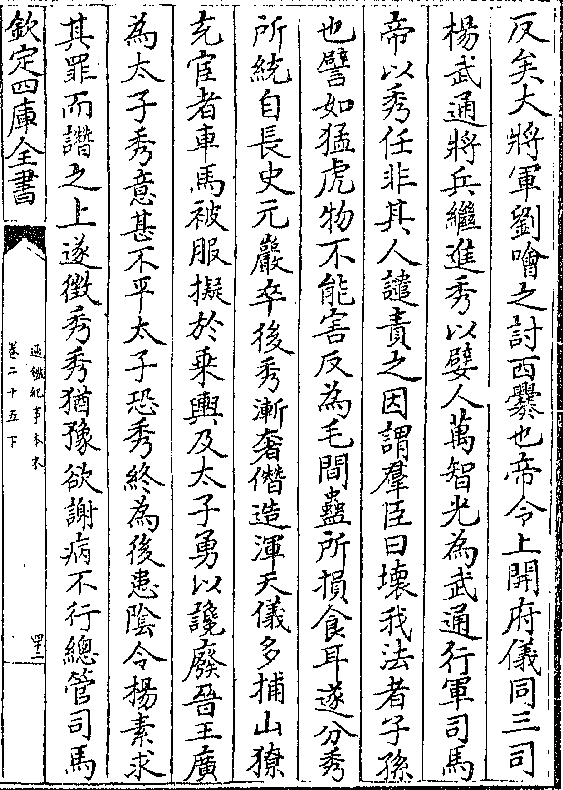 反矣大將軍劉噲之討西爨也帝令上開府儀同三司
楊武通將兵繼進秀以嬖人萬智光為武通行軍司馬
帝以秀任非其人譴責之因謂羣臣曰壞我法者子孫
也譬如猛虎物不能害反為毛間蟲所損食耳遂分秀
所統自長史元巖卒後秀漸奢僭造渾天儀多捕山獠
充宦者車馬被服擬於乗輿及太子勇以讒廢晉王廣
為太子秀意甚不平太子恐秀終為後患陰令楊素求
其罪而譖之上遂徵秀秀猶豫欲謝病不行總管司馬
欽定四庫全書
通鑑紀事本末
卷二十五下
四二